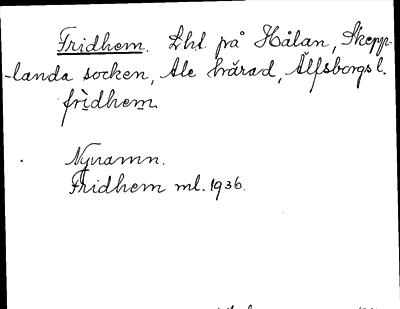 Fridhem. Lht. på Hålan, Skepp-
-landa socken, Ale härad, Älfsborgs l.
frìdhem
Nynamn.
Fridhem ml. 1936.